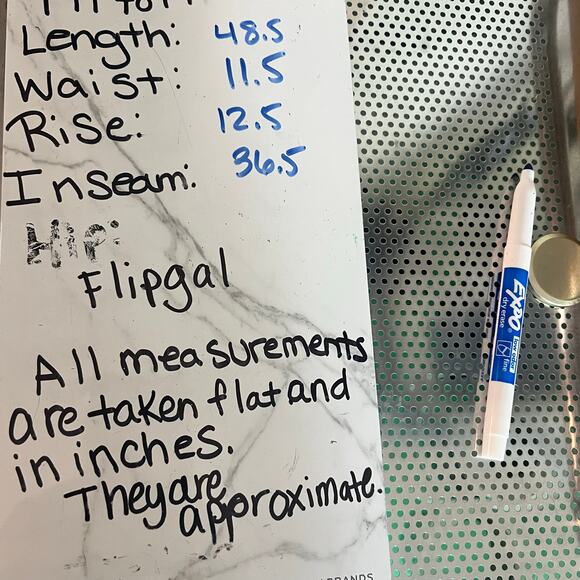 Length: 48.5
Waist: 11.5
Rise: 12.5
Inseam: 36.5
Hip:
Flipgal
All measurements
are taken flat and
in inches.
They are
approximate.
EXPO
dry erase
fine